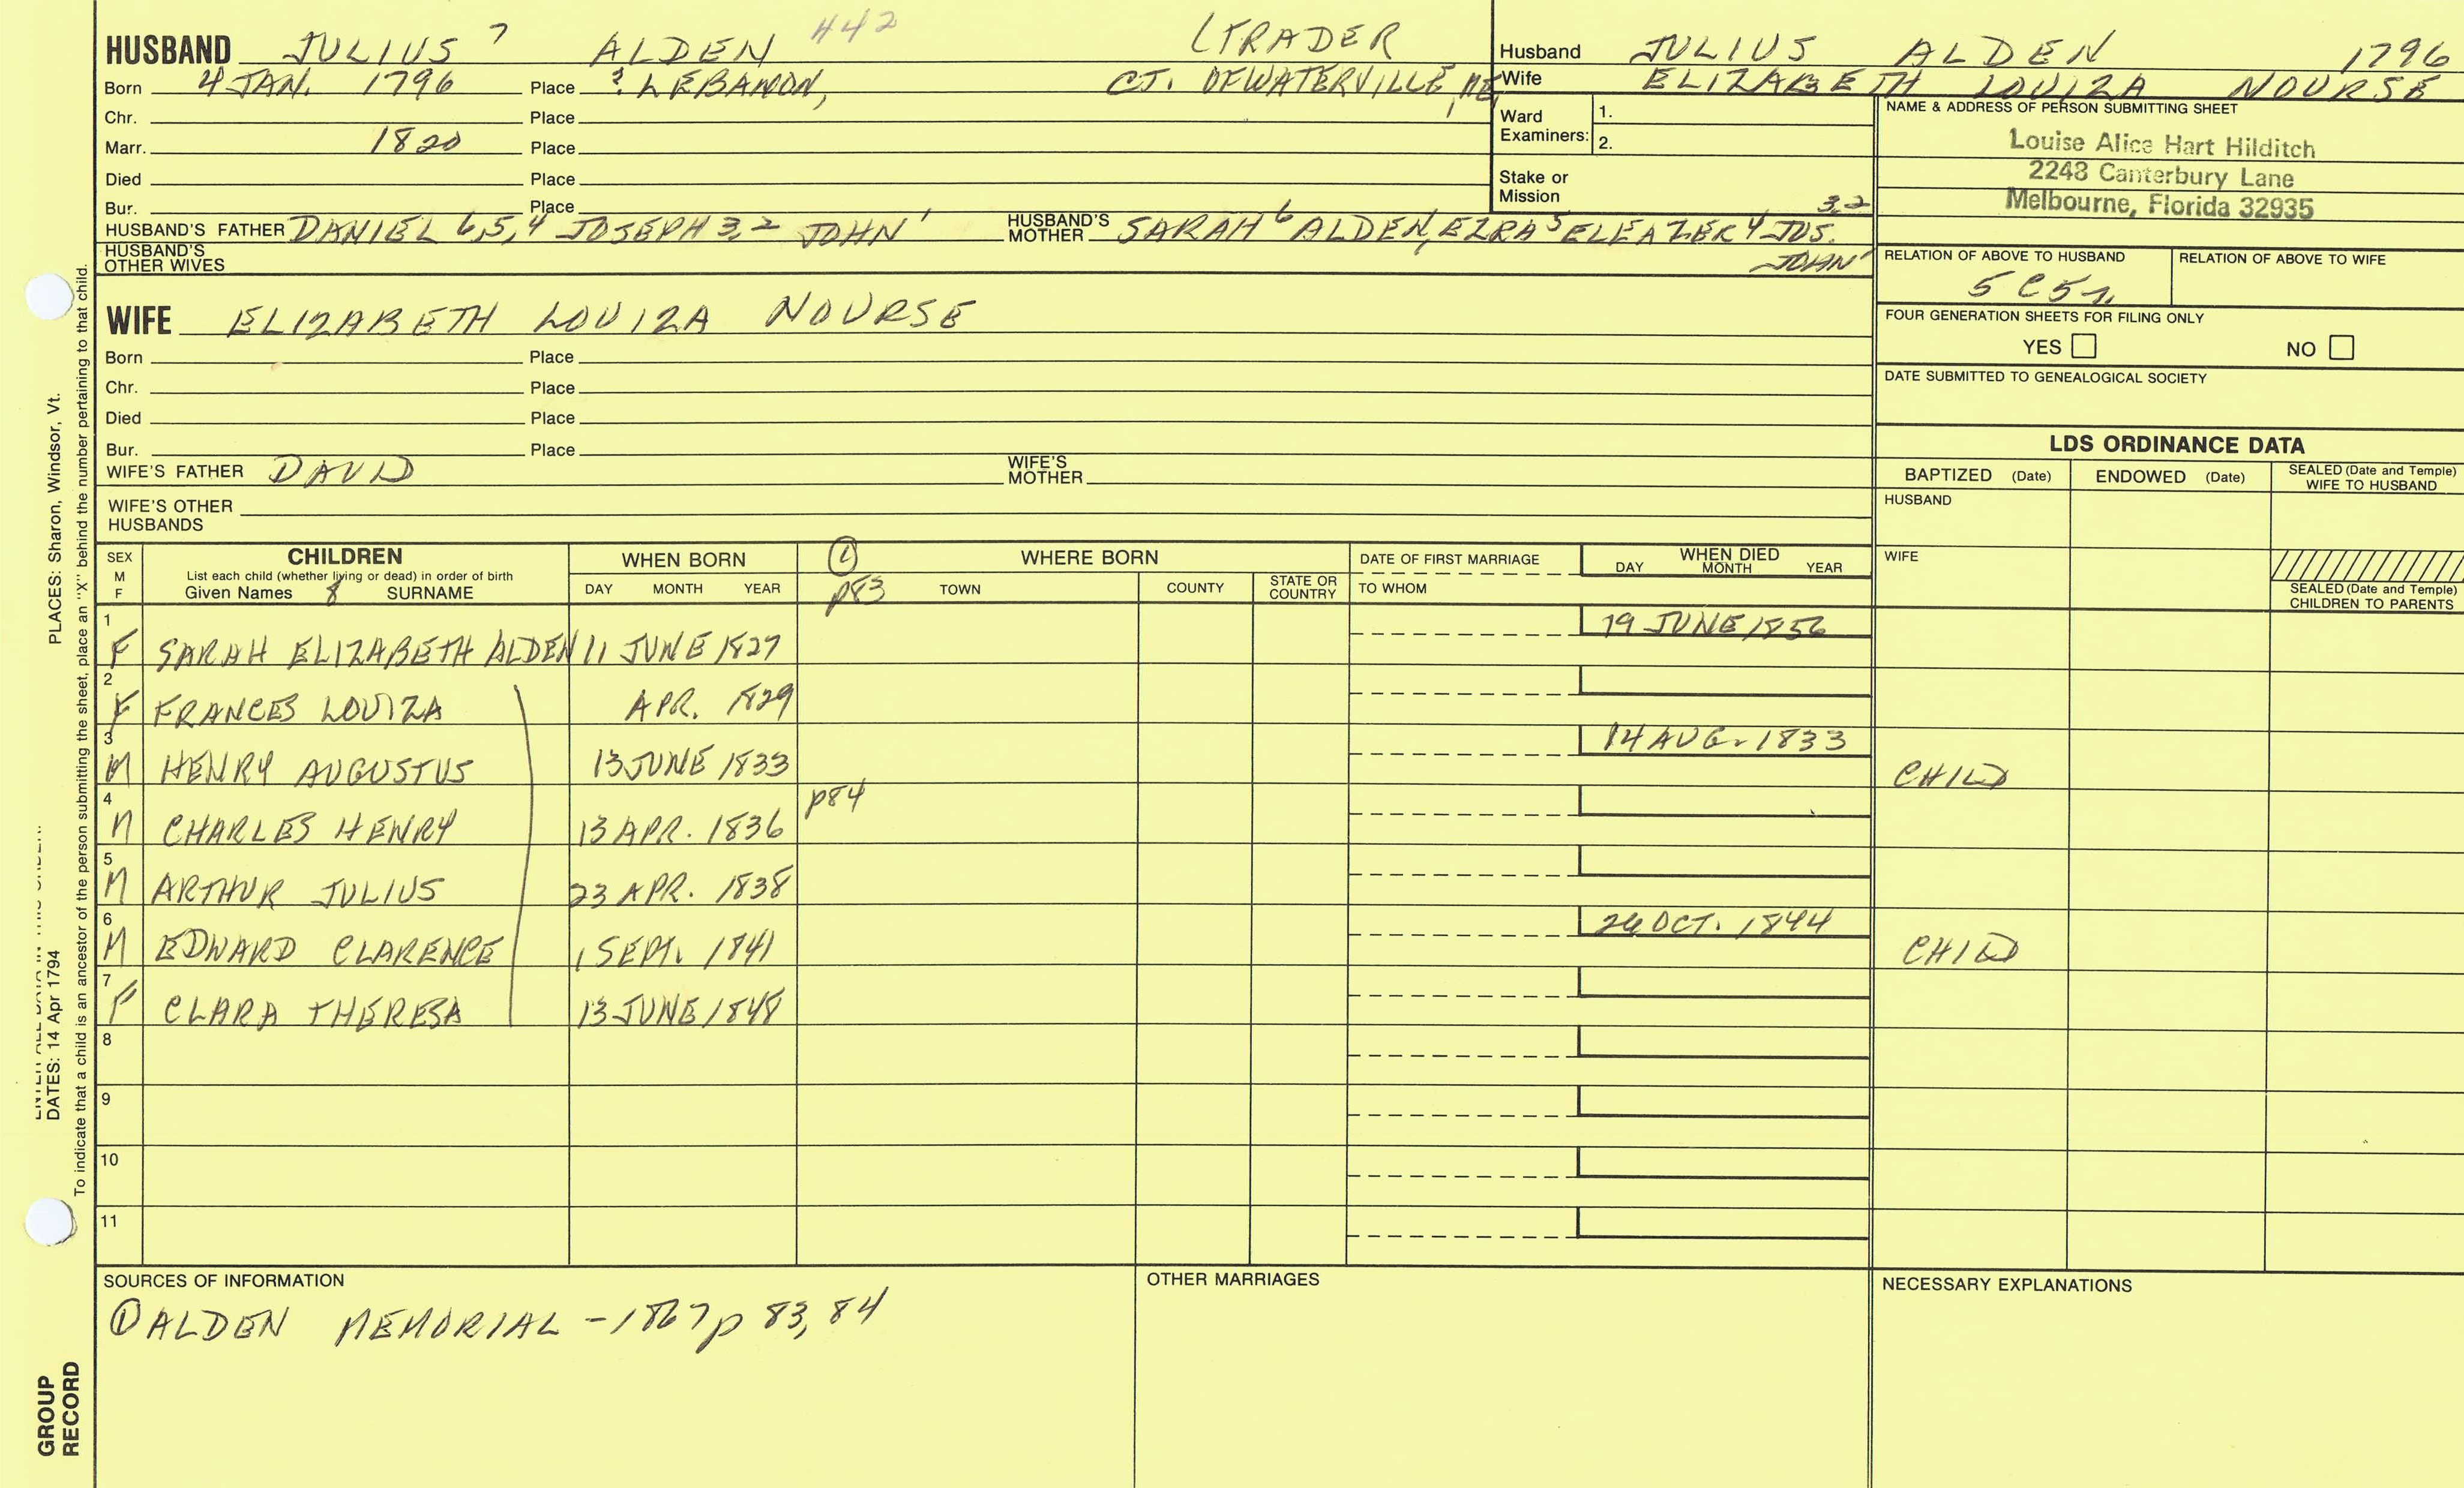 HUSBAND JULIUS 7 ALDEN 442 (TRADER
Born 4 JAN. 1796 Place ? LEBANON, CT. OF WATERVILLE, ME
Chr. Place
Marr. 1820 Place
Died Place
Bur. Place
HUSBAND'S FATHER DANIEL 6,5,4 JOSEPH 3,2 JOHN 1 HUSBAND'S MOTHER SARAH 6 ALDEN, EZRA 5 ELEAZER 4 JOS. 3,2
JOHN 1
HUSBAND'S OTHER WIVES
WIFE ELIZABETH LOUIZA NOURSE
Born Place
Chr. Place
Died Place
Bur. Place
WIFE'S FATHER DAVID WIFE'S MOTHER
WIFE'S OTHER HUSBANDS
Husband JULIUS ALDEN 1796
Wife ELIZABETH LOUIZA NOURSE
Ward Examiners: 1.
2.
Stake or Mission
NAME & ADDRESS OF PERSON SUBMITTING SHEET
Louise Alice Hart Hilditch
2248 Canterbury Lane
Melbourne, Florida 32935
RELATION OF ABOVE TO HUSBAND RELATION OF ABOVE TO WIFE
5C5r
FOUR GENERATION SHEETS FOR FILING ONLY
YES NO
DATE SUBMITTED TO GENEALOGICAL SOCIETY
LDS ORDINANCE DATA
BAPTIZED (Date) ENDOWED (Date) SEALED (Date and Temple) WIFE TO HUSBAND
HUSBAND
WIFE
SEALED (Date and Temple) CHILDREN TO PARENTS
SEX M F
CHILDREN
List each child (whether living or dead) in order of birth
Given Names 8 SURNAME
WHEN BORN
DAY MONTH YEAR
① p83
WHERE BORN
TOWN COUNTY STATE OR COUNTRY
DATE OF FIRST MARRIAGE
TO WHOM
WHEN DIED
DAY MONTH YEAR
1 F SARAH ELIZABETH ALDEN 11 JUNE 1827 19 JUNE 1856
2 F FRANCES LOUIZA APR. 1829
3 M HENRY AUGUSTUS 13 JUNE 1833 14 AUG. 1833 CHILD
4 M CHARLES HENRY 13 APR. 1836 p84
5 M ARTHUR JULIUS 23 APR. 1838
6 M EDWARD CLARENCE 1 SEPT. 1841 26 OCT. 1844 CHILD
7 F CLARA THERESA 13 JUNE 1848
8
9
10
11
SOURCES OF INFORMATION
① ALDEN MEMORIAL - 1867 p 83, 84
OTHER MARRIAGES
NECESSARY EXPLANATIONS
PLACES: Sharon, Windsor, Vt.
DATES: 14 Apr 1794
To indicate that a child is an ancestor of the person submitting the sheet, place an "X" behind the number pertaining to that child.
GROUP RECORD